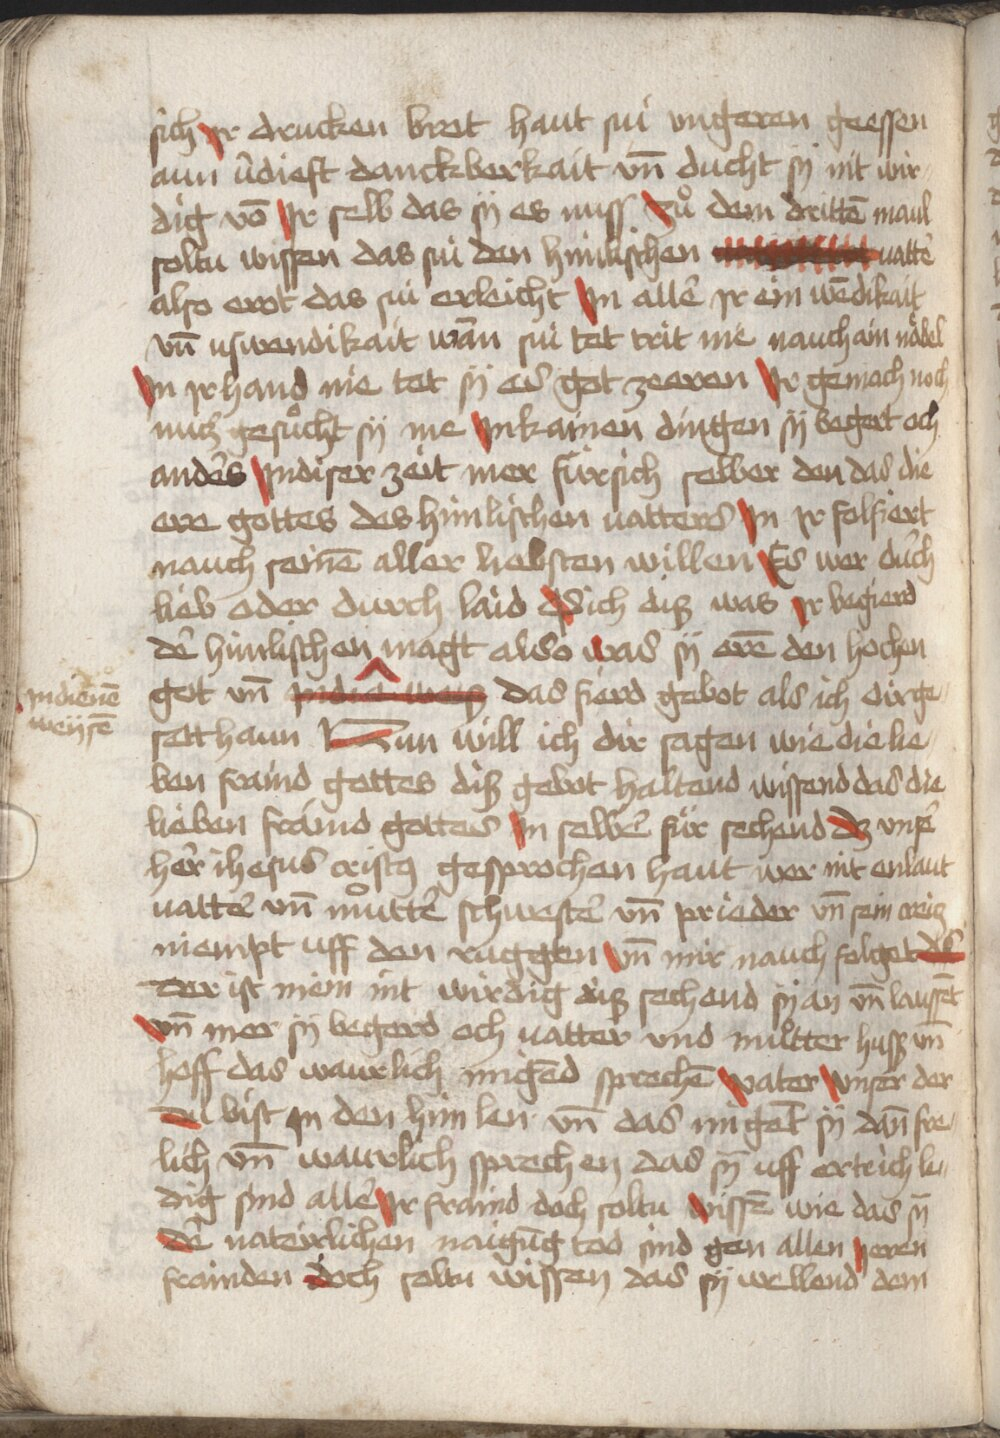 sich Ir drucken brot haut sui ungeren geessen
aun ůdiest danckberkait vn̄ ducht sÿ nit wir-
dig vō Ir selb das sÿ es nuss Zů dem drittē maul
soltu wissen das sui den himlischen vattē
also erot das sui erleicht In allē Ir ein wēdikait
vn̄ uswendikait wān sui tet trit nie nauch ain nǎdel
In Ir hand nie tet sÿ es got ze eren Ir gemach noch
nutz gesůcht sÿ nie In kainen dingen sÿ begert och
andēs In diser zeit mer für sich selber den das die
ere gottes des himlischen vatters In Ir folfiert
nauch seinē aller liebsten willen Es wer durch
lieb oder durch laid Sich diß was Ir begierd
dē himlischen magt also was sÿ erē den hochen
got vn̄ das fierd gebot als ich dir ge-
In dienē
weÿsē
sett haun Nun will ich dir sagen wie die lie-
ben fraind gottes diß gebot haltend wissend das die
lieben fraind gottes In selbē für sechend dz unsē
hēr ihesus cristꝯ gesprochen haut wer nit enlaut
vattē vn̄ můttē schwestē vn̄ prieder vn̄ sein creitz
niempt uff den ruggen vn̄ mir nauch folget
Der ist mein nit wirdig diß sechend sÿ an vn̄ laussēt
vn̄ mer sÿ begerd och vatter und můtter huss vn̄
hoff das waurlich migēd sprechē vater unser der
Du bist In den himlen vn̄ das migēt sÿ dān fre-
lich vn̄ waurlich sprechen das sÿ uff erteich le-
dig sind allē Ir fraind doch soltu wissē wie das sÿ
dē nateirlichen naigūg tod sind gen allen Ieren
frainden doch soltu wissen das sÿ wellend dem